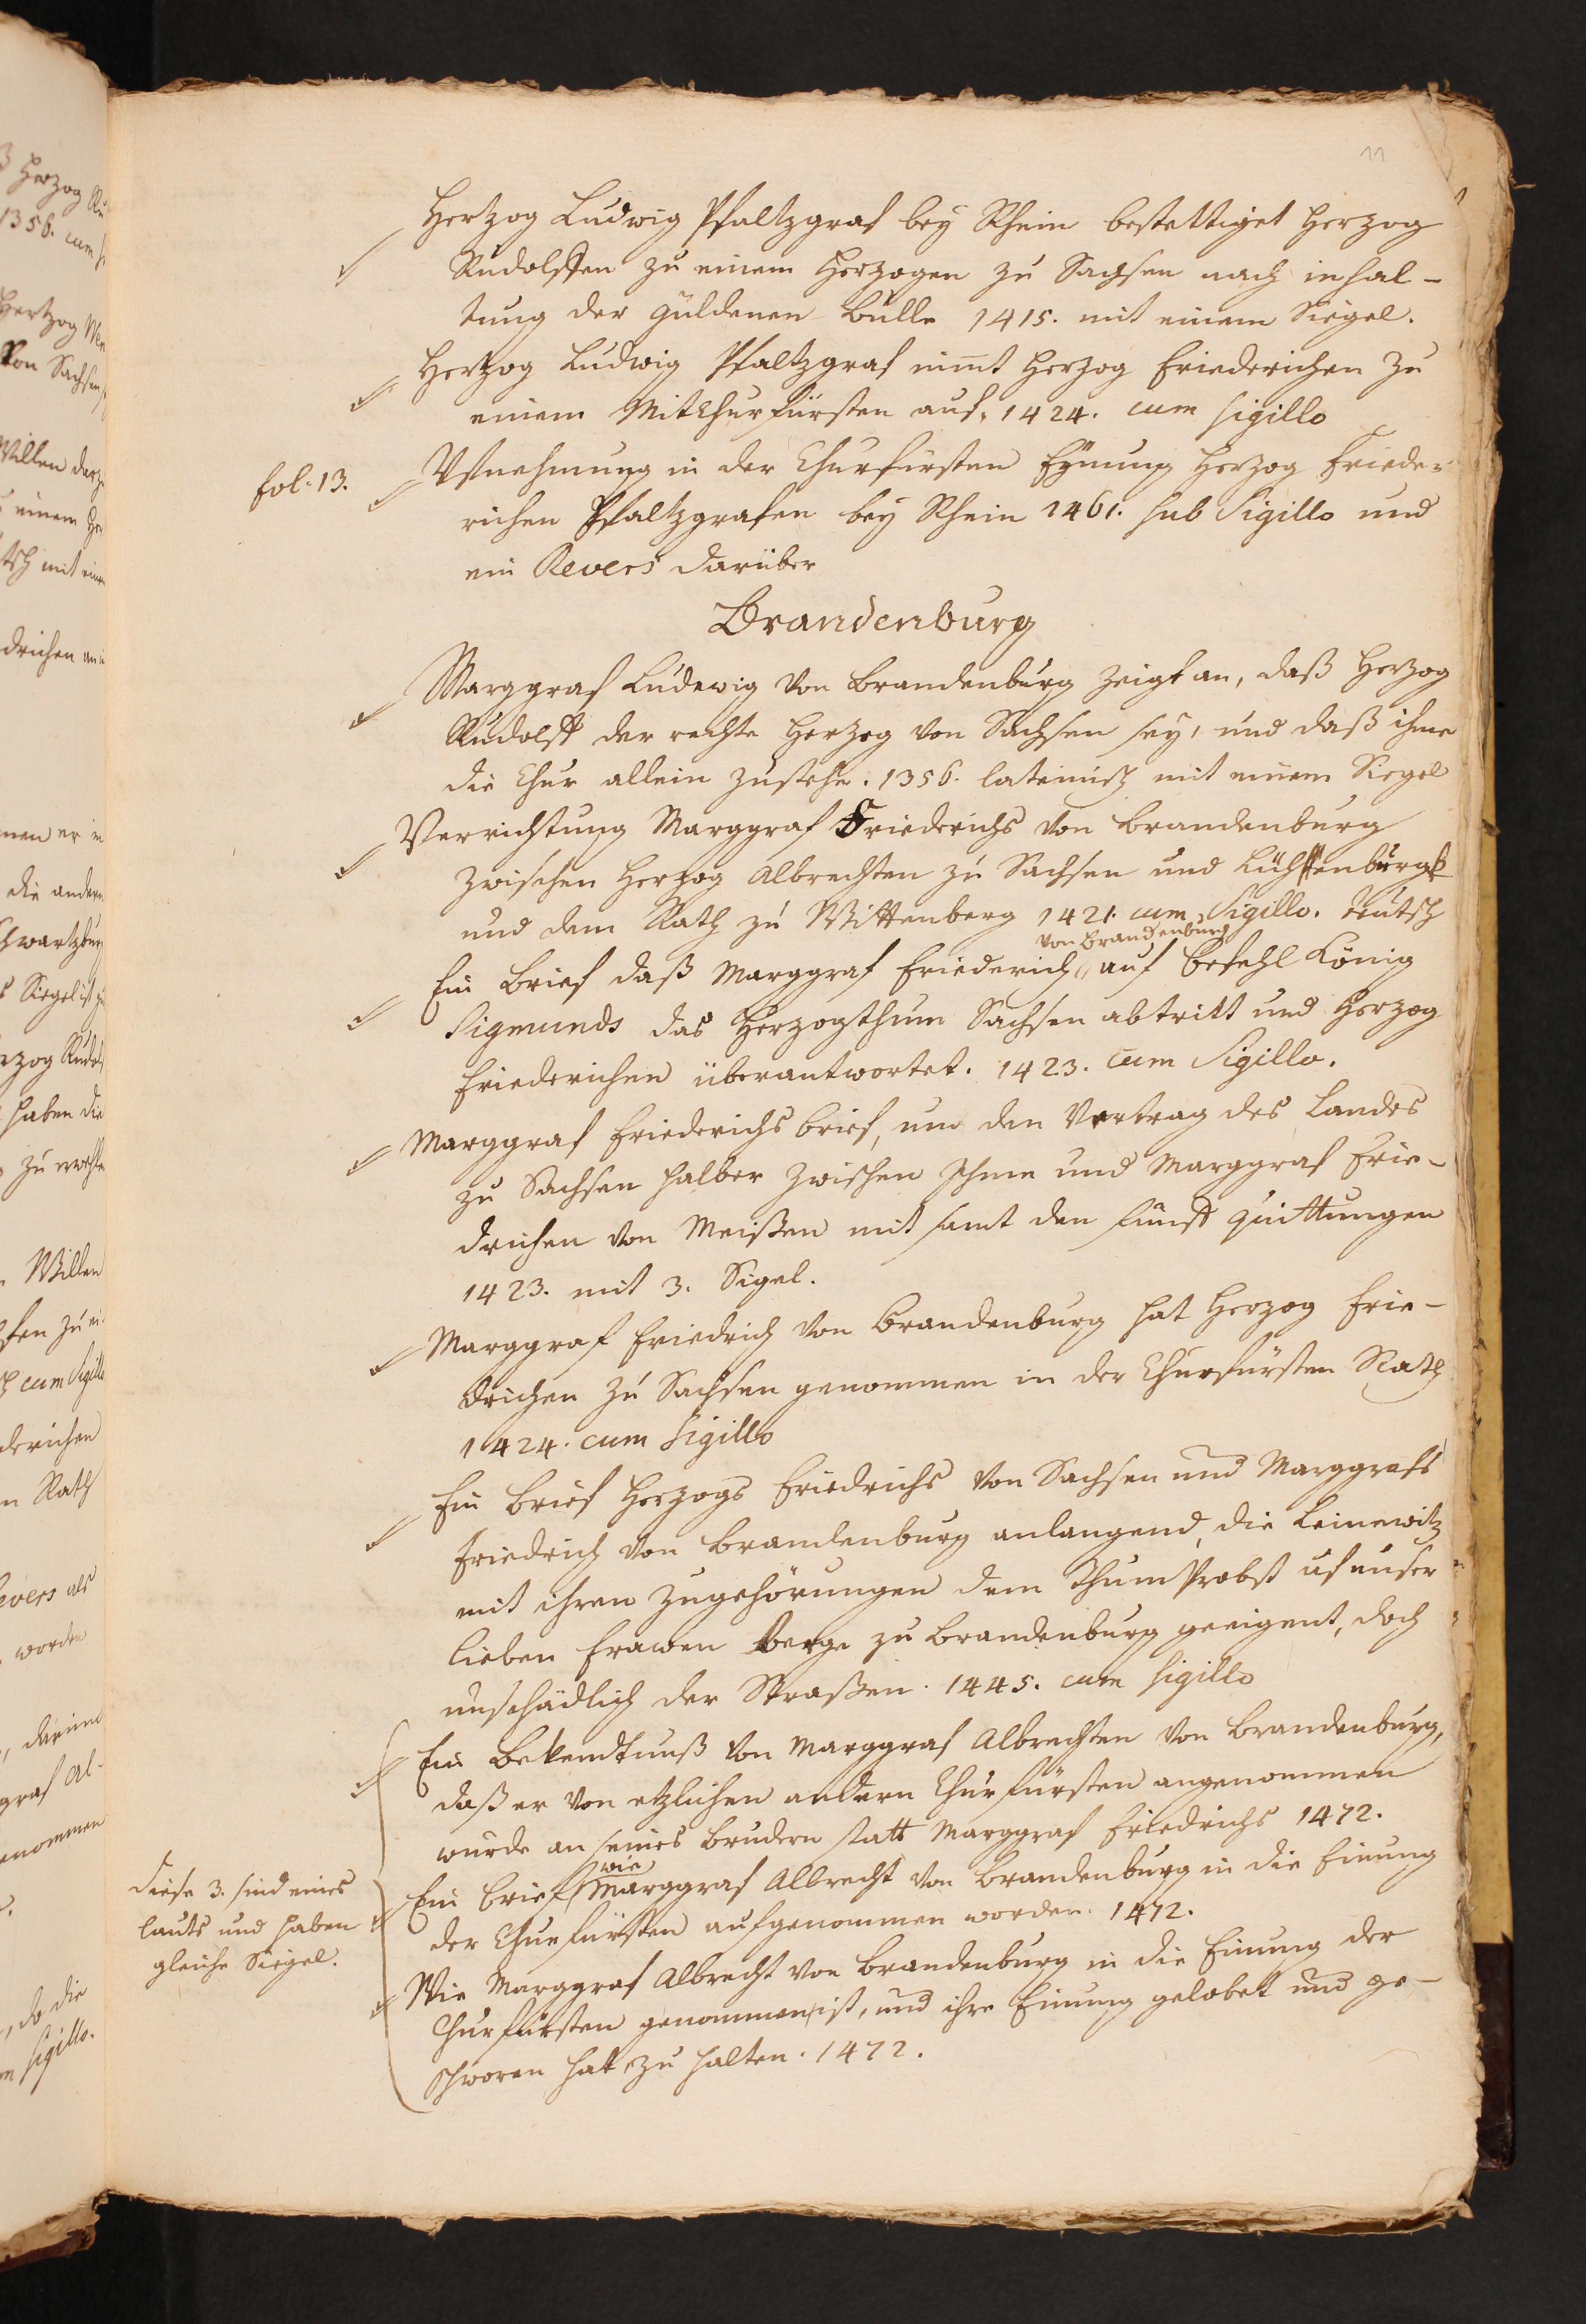 11
Hertzog Ludwig Pfaltzgraf bey Rhein bestettiget Herzog
Rudolffen zu einem Herzogen zu Sachsen nach inhal-
tung der güldenen Bulle 1415. mit einem Siegel.
Hertzog Ludwig Pfaltzgraf nimt Herzog Friederichen zu
einem MitChurfürsten auf, 1424. cum sigillo
fol. 13.
Ufnehmung in der Churfürsten Eynung Herzog Friede-
richen Pfaltzgrafen bey Rhein 1461. sub Sigillo und
ein Revers darüber
Brandenburg
Marggraf Ludewig von Brandenburg zeigt an, daß Herzog
Rudolff der rechte Herzog von Sachsen sey, und daß ihme
die Chur allein zustehe. 1356. lateinisch mit einem Siegel
Verrichtung Marggraf Friederichs von Brandenburg
zwischen Herzog Albrechten zu Sachsen und
und dem Rath zu Wittenberg 1421. cum Sigillo. deutsch
von Brandenburg
Ein Brief daß Marggraf Friederich auf Befehl König
Sigmunds das Herzogthum Sachsen abtritt und Herzog
Friederichen überantwortet. 1423. cum Sigillo.
Marggraf Friederichs Brief, um den Vertrag des Landes
zu Sachsen halber zwischen Ihme und Marggraf Frie-
drichen von Meißen mit samt den fünff quittungen
1423. mit 3. Sigel.
Marggraf Friedrich von Brandenburg hat Herzog Frie-
drichen zu Sachsen genommen in der Churfürsten Rath
1424. cum Sigillo
Ein Brief Herzogs Friedrichs von Sachsen und Marggrafs
Friedrich von Brandenburg anlangend, die Leinewitz
mit ihren Zugehörungen dem ThumProbst uf unser
lieben Frawen Berge zu Brandenburg geeigent, doch
unschädlich der Straßen. 1445. cum sigillo
Ein Bekendtnuß von Marggraf Albrechten von Brandenburg,
daß er von etzlichen andern Churfürsten angenommen
wurde an seines Brudern statt Marggraf Friedrichs 1472.
wie
Ein Brief Marggraf Albrecht von Brandenburg in die Einung
der Churfürsten aufgenommen worden. 1472.
Diese 3. sind eines
lauts und haben
gleiche Siegel.
Wie Marggraf Albrecht von Brandenburg in die Einung der
Churfürsten genommen ist, und ihre Einung gelobet und ge-
schworen hat zu halten. 1472.